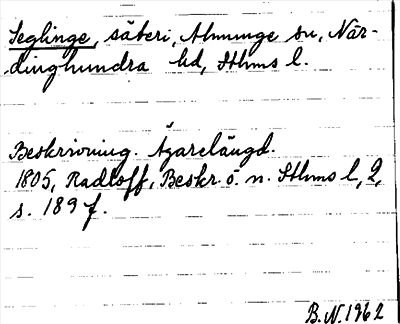 Seglinge, säteri, Almunge sn, När-
dinghundra hd, Sthms l.
Beskrivning. Ägarelängd.
1805, Radloff, Beskr. ö. n. Sthms l, 2,
s. 189 f.
B.N. 1962